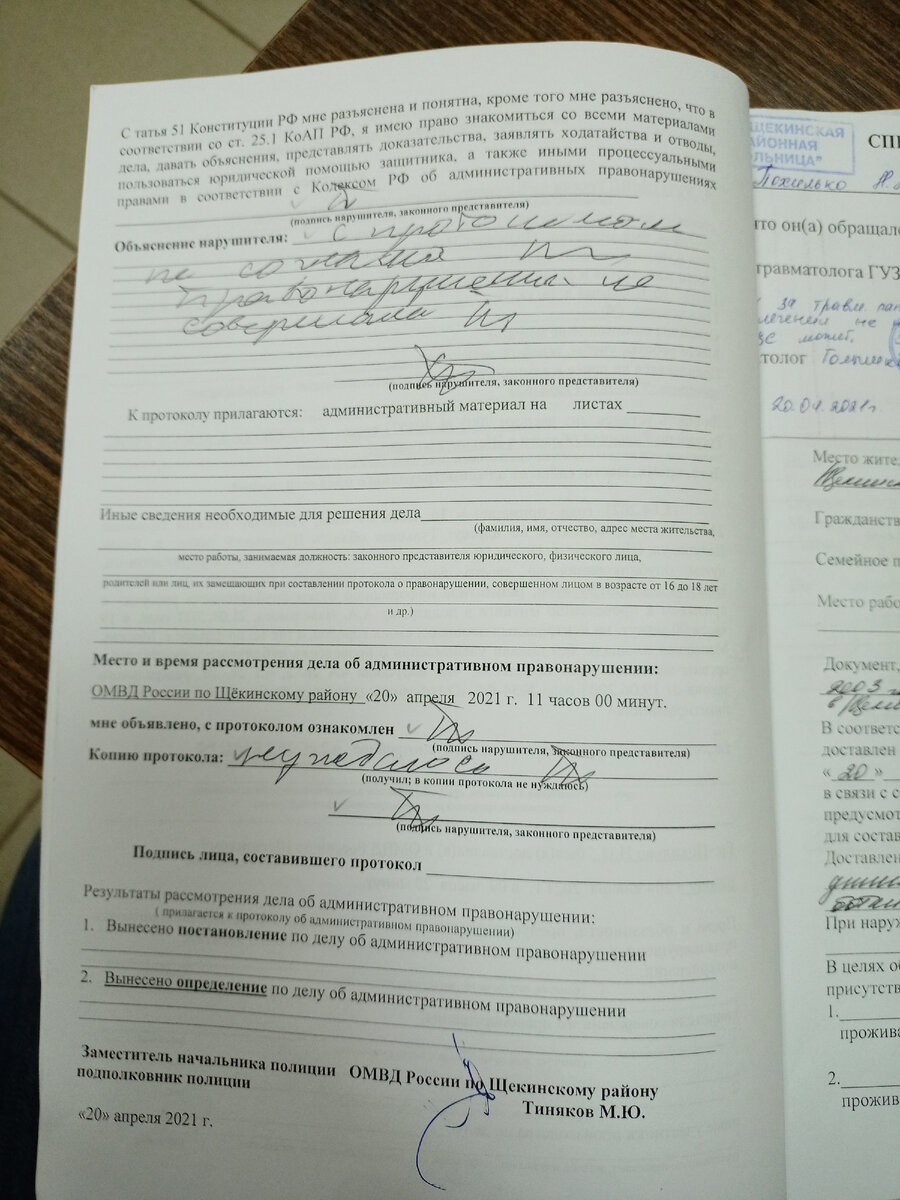 С татья 51 Конституции РФ мне разъяснена и понятна, кроме того мне разъяснено, что в
соответствии со ст. 25.1 КоАП РФ, я имею право знакомиться со всеми материалами
дела, давать объяснения, представлять доказательства, заявлять ходатайства и отводы,
пользоваться юридической помощью защитника, а также иными процессуальными
правами в соответствии с Кодексом РФ об административных правонарушениях
(подпись нарушителя, законного представителя)
Объяснение нарушителя: с протоколом
не согласна
правонарушения не
совершала
(подпись нарушителя, законного представителя)
К протоколу прилагаются: административный материал на листах
Иные сведения необходимые для решения дела
(фамилия, имя, отчество, адрес места жительства,
место работы, занимаемая должность: законного представителя юридического, физического лица,
родителей или лиц, их замещающих при составлении протокола о правонарушении, совершенном лицом в возрасте от 16 до 18 лет
и др.)
Место и время рассмотрения дела об административном правонарушении:
ОМВД России по Щёкинскому району «20» апреля 2021 г. 11 часов 00 минут.
мне объявлено, с протоколом ознакомлен
(подпись нарушителя, законного представителя)
Копию протокола:
(получил; в копии протокола не нуждаюсь)
(подпись нарушителя, законного представителя)
Подпись лица, составившего протокол
Результаты рассмотрения дела об административном правонарушении:
( прилагается к протоколу об административном правонарушении)
1. Вынесено постановление по делу об административном правонарушении
2. Вынесено определение по делу об административном правонарушении
Заместитель начальника полиции ОМВД России по Щекинскому району
подполковник полиции Тиняков М.Ю.
«20» апреля 2021 г.
ЩЕКИНСКАЯ
АЙОННАЯ
ЛЬНИЦА"
СП
Похилько
то он(а) обращал
травматолога ГУЗ
за травм.
не
может.
толог
20.04.2021г.
Место жите
Гражданств
Семейное п
Место рабо
Документ,
2003
В соответс
доставлен
«20»
в связи с с
предусмот
для состав
Доставлен
При наруж
В целях об
присутств
1.
прожива
2.
прожив